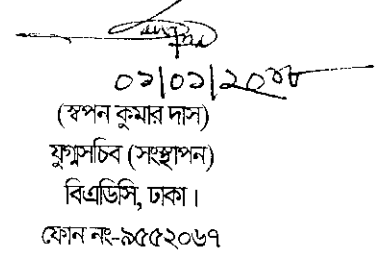 (স্বপন কুমার দাস)
যুগ্মসচিব (সংস্থাপন)
বিএডিসি, ঢাকা।
ফোন নং-৯৫৫২০৬৭